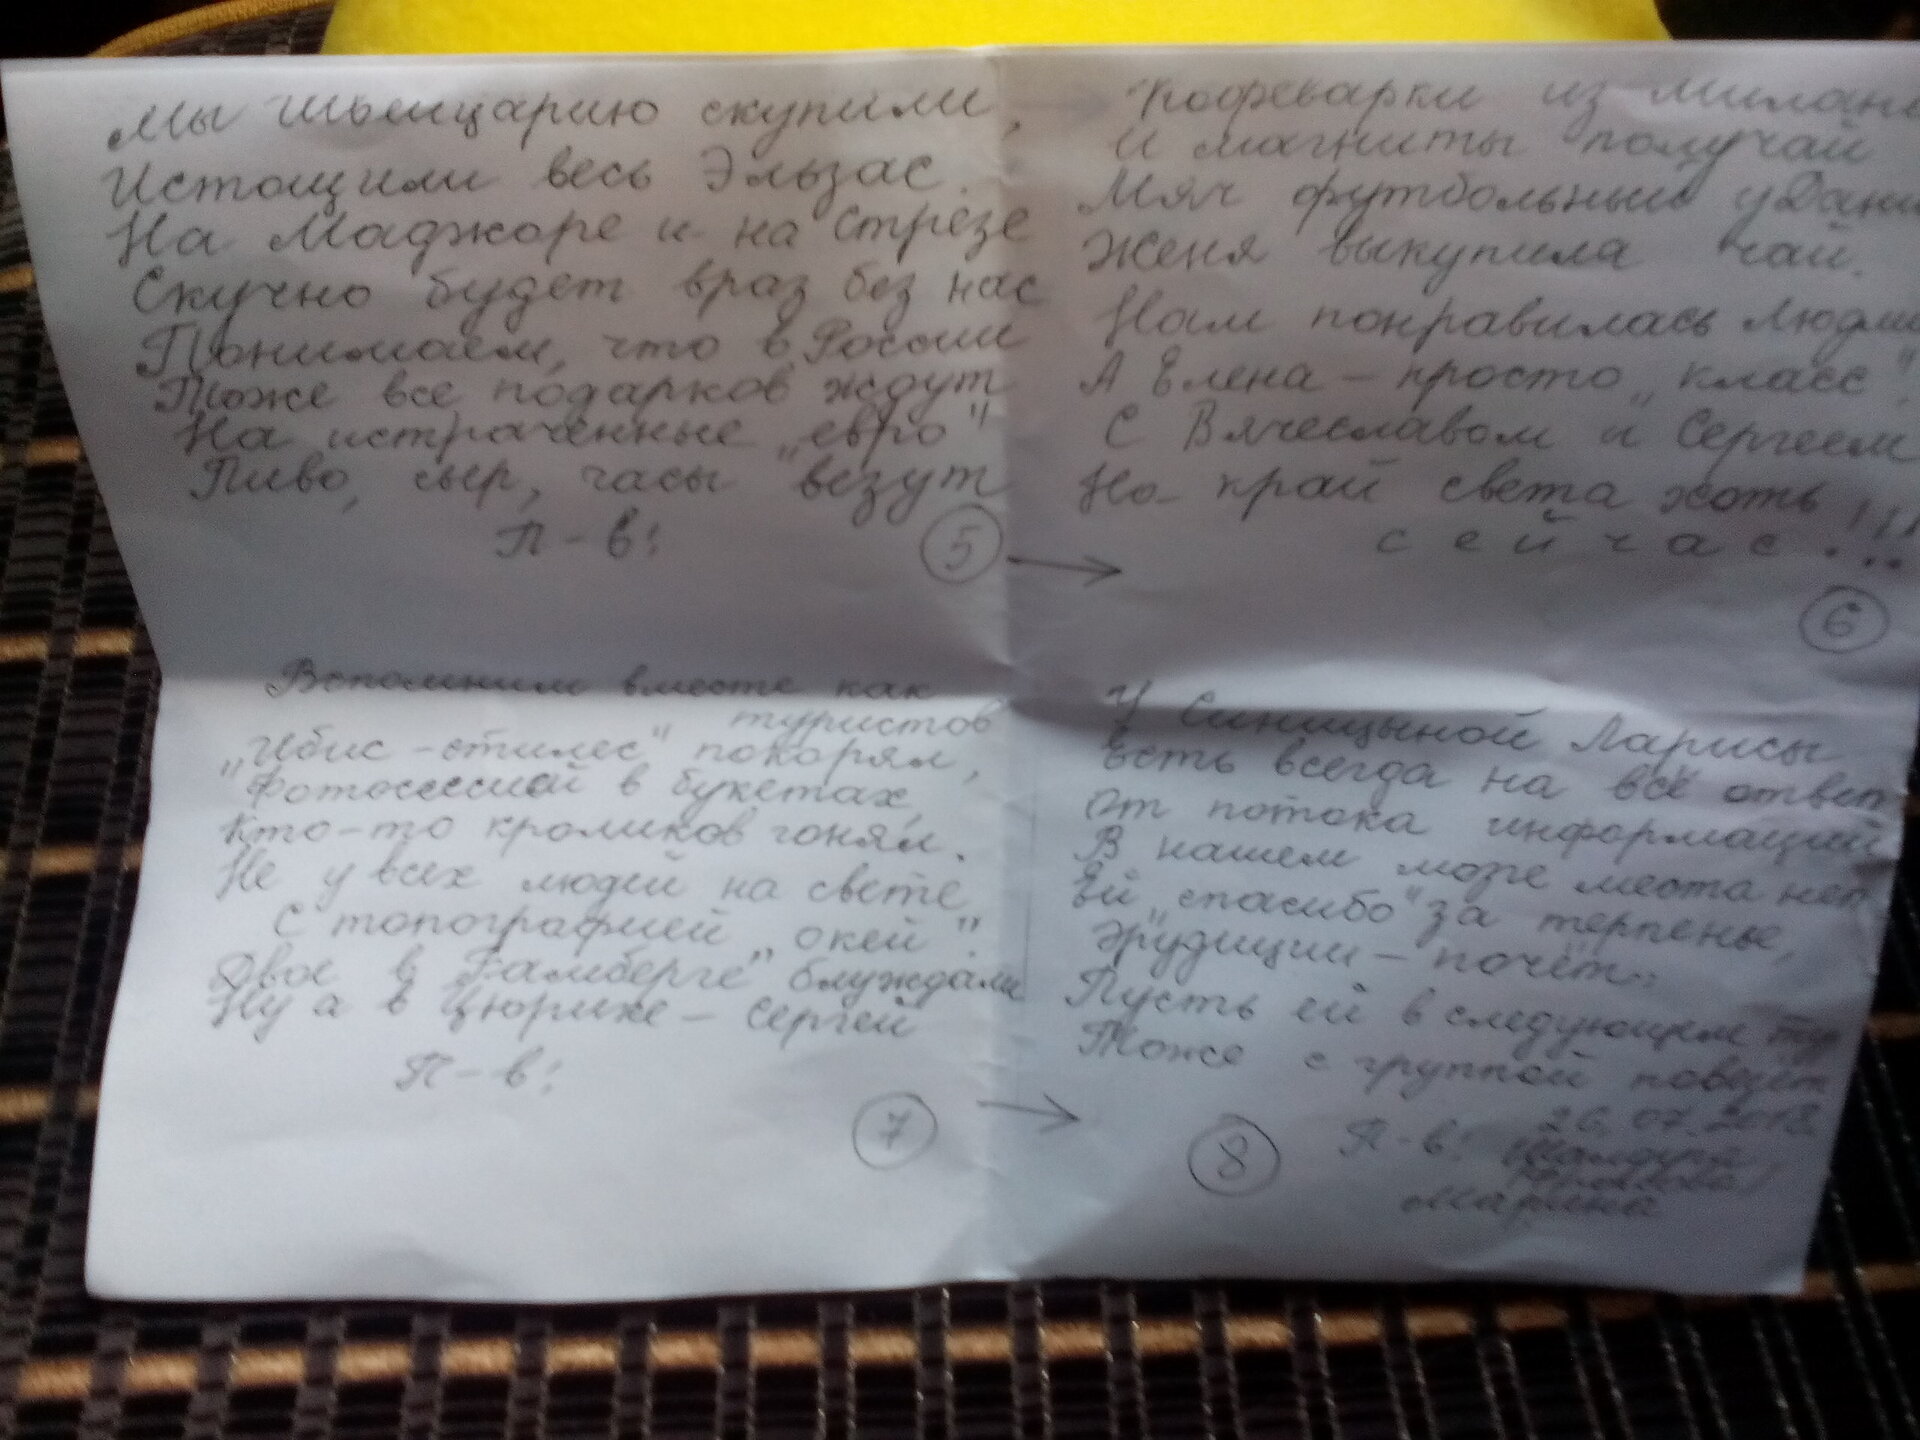 Мы Швейцарию скупили,
Истощили весь Эльзас.
На Маджоре и на Стрезе
Скучно будет враз без нас
Понимаем, что в России
Тоже все подарков ждут
На истраченные „евро"
Пиво, сыр, часы везут
П-в!
5
Кофеварки из Милана
И магниты получай
Мяч футбольный у Дани
Женя выкупила чай.
Нам понравилась
А Елена – просто „класс",
С Вячеславом и Сергеем
На край света хоть
сейчас...!!!
6
Вспомним вместе как
туристов
„Ибис-стилес" покорял,
Фотосессией в букетах,
Кто-то кроликов гонял.
Не у всех людей на свете
С топографией „окей".
Двое в Бамберге блуждали
Ну а в Цюрихе – Сергей
П-в!
7
У Синицыной Ларисы
Есть всегда на всё ответ
От потока информаций
В нашем море места нет
Ей „спасибо" за терпенье,
Эрудиции – почёт..
Пусть ей в следующем туре
Тоже с группой повезёт
26.07.2018
П-в!
Марина
8